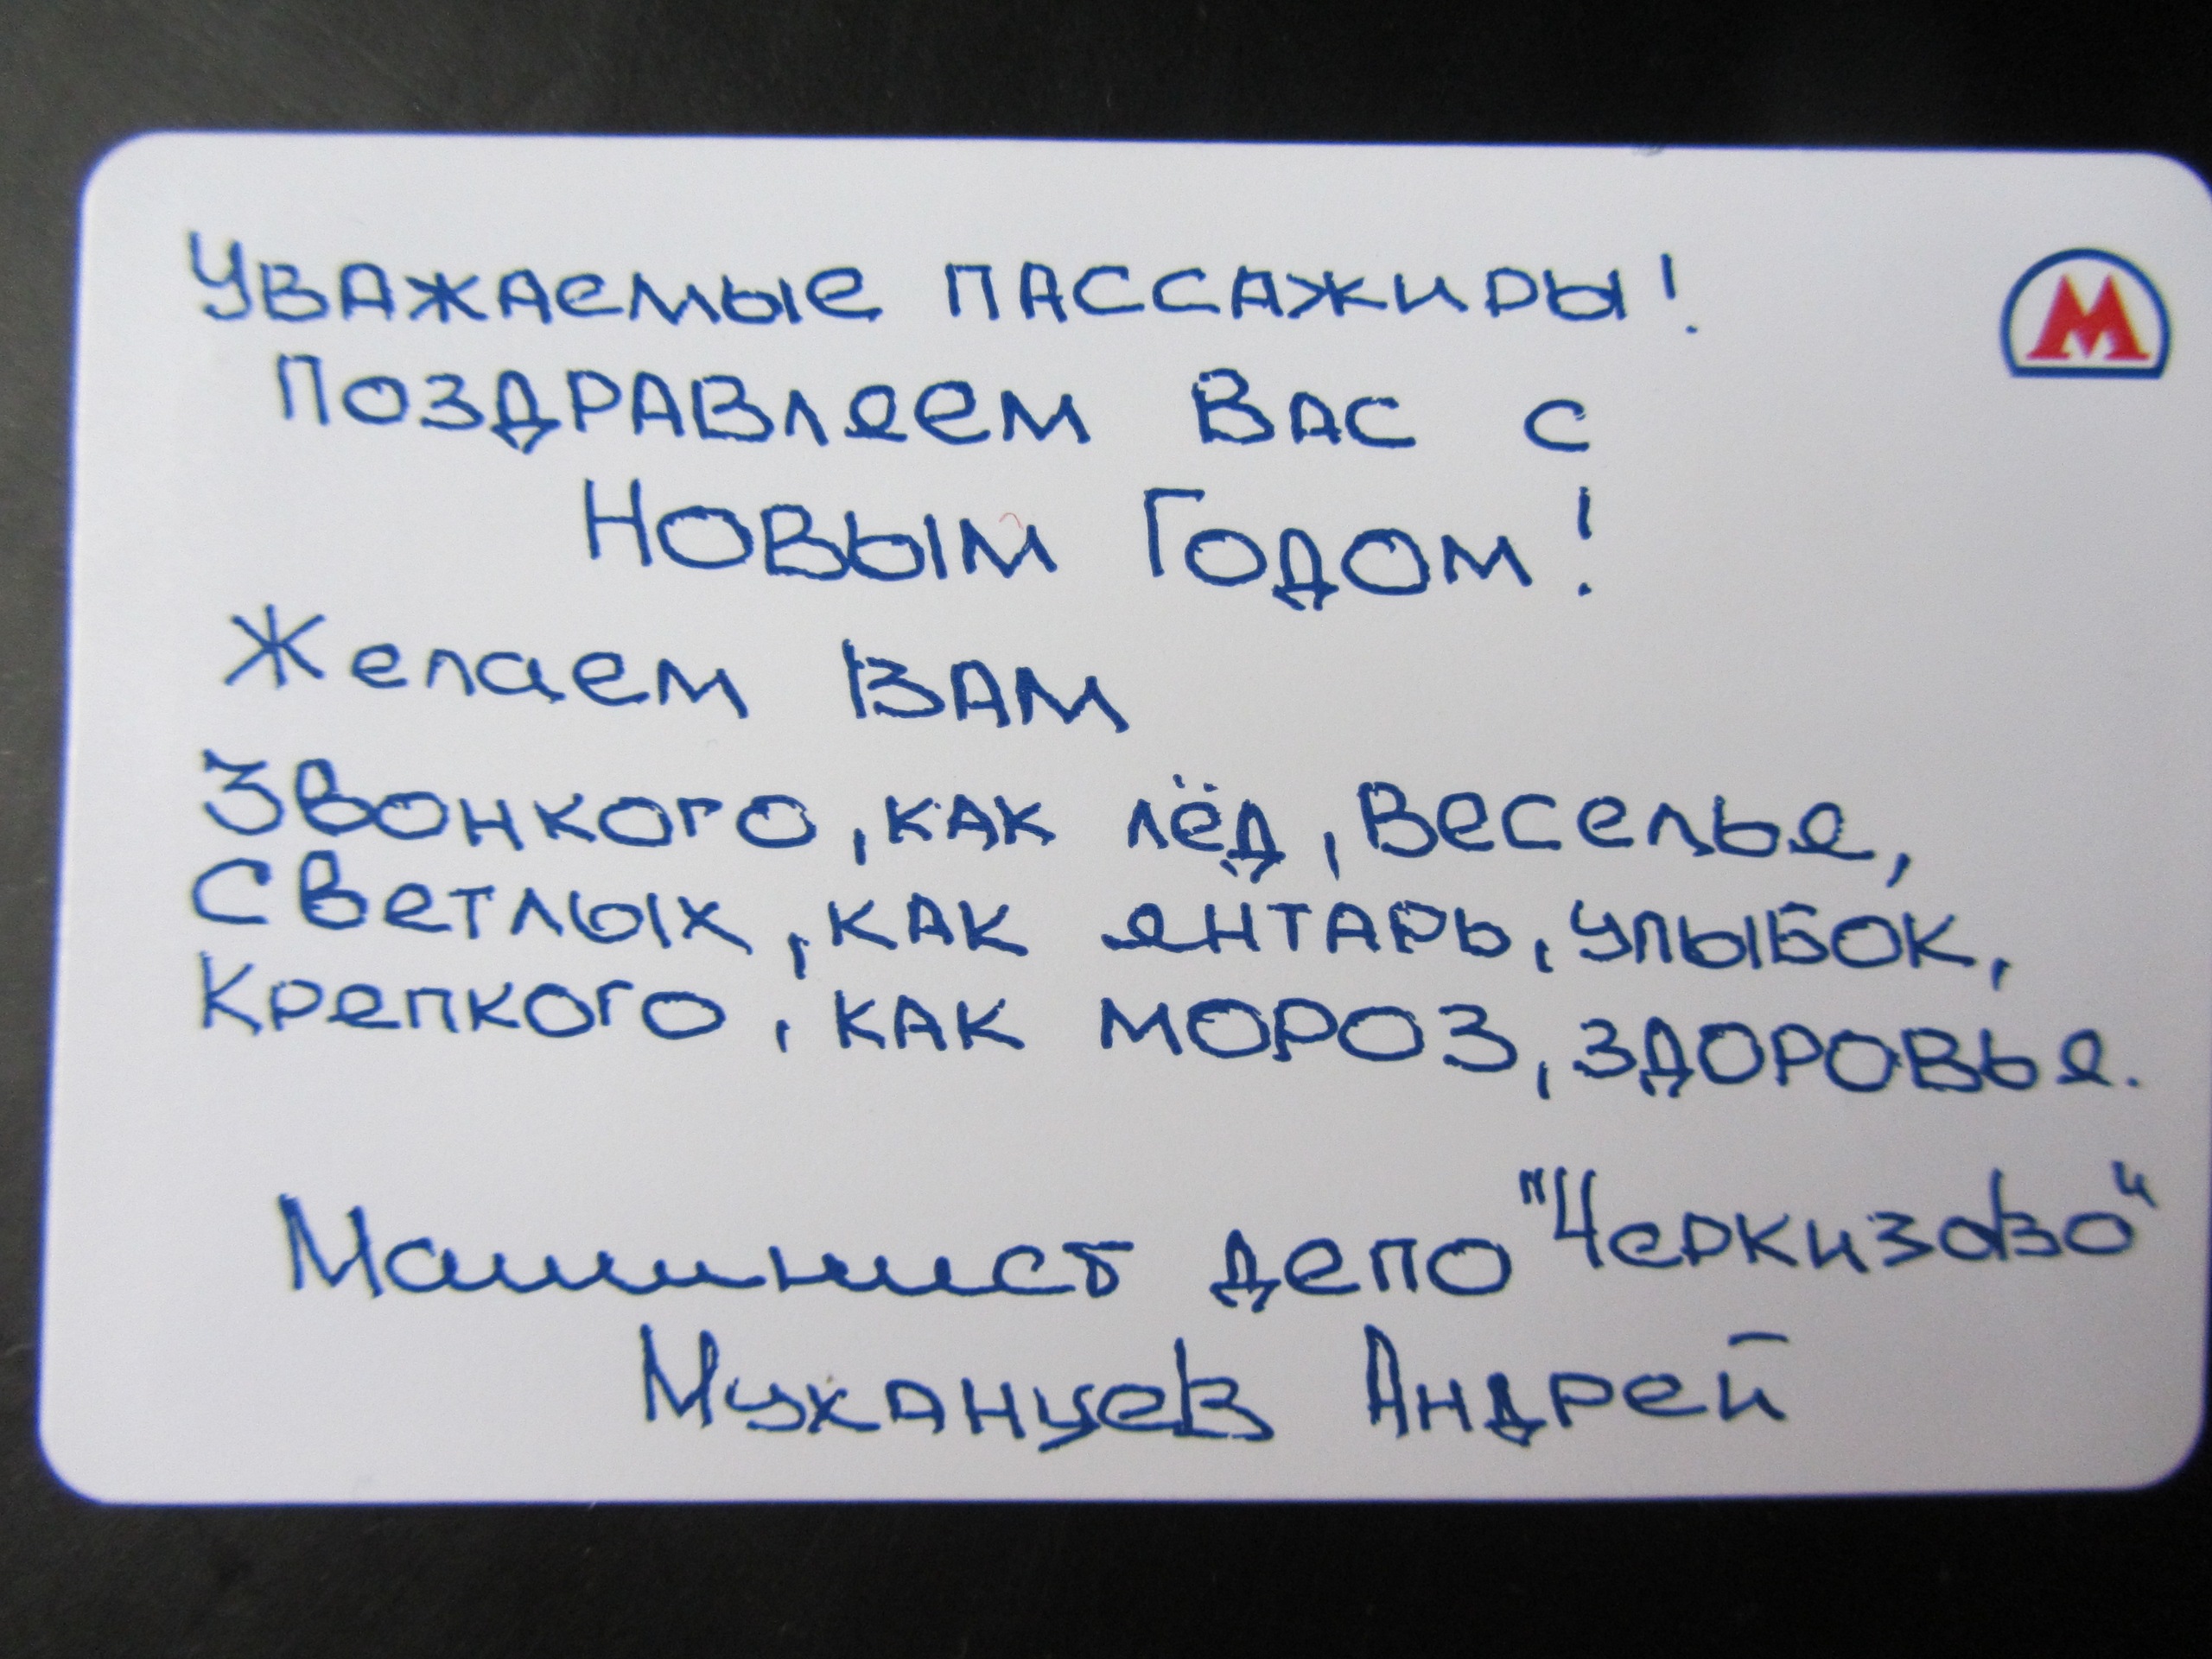 Уважаемые пассажиры!
Поздравляем Вас с
Новым Годом!
Желаем Вам
Звонкого, как лёд, веселья,
Светлых, как янтарь, улыбок,
Крепкого, как мороз, здоровья.
Машинист депо "Черкизово"
Муханцев Андрей
М